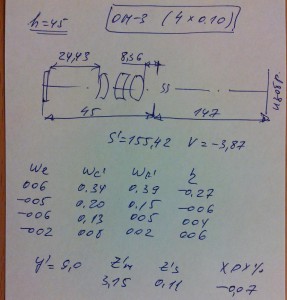 h=45
ОМ-3 (4×0,10)
24,43
8,36
45
147
S'=155,42 V=-3,87
006 0,34 0,39 -0,27
-005 0,20 0,15 -006
-006 0,13 005 004
-002 008 002 006
y'=5,0
3,15 0,11 -0,07